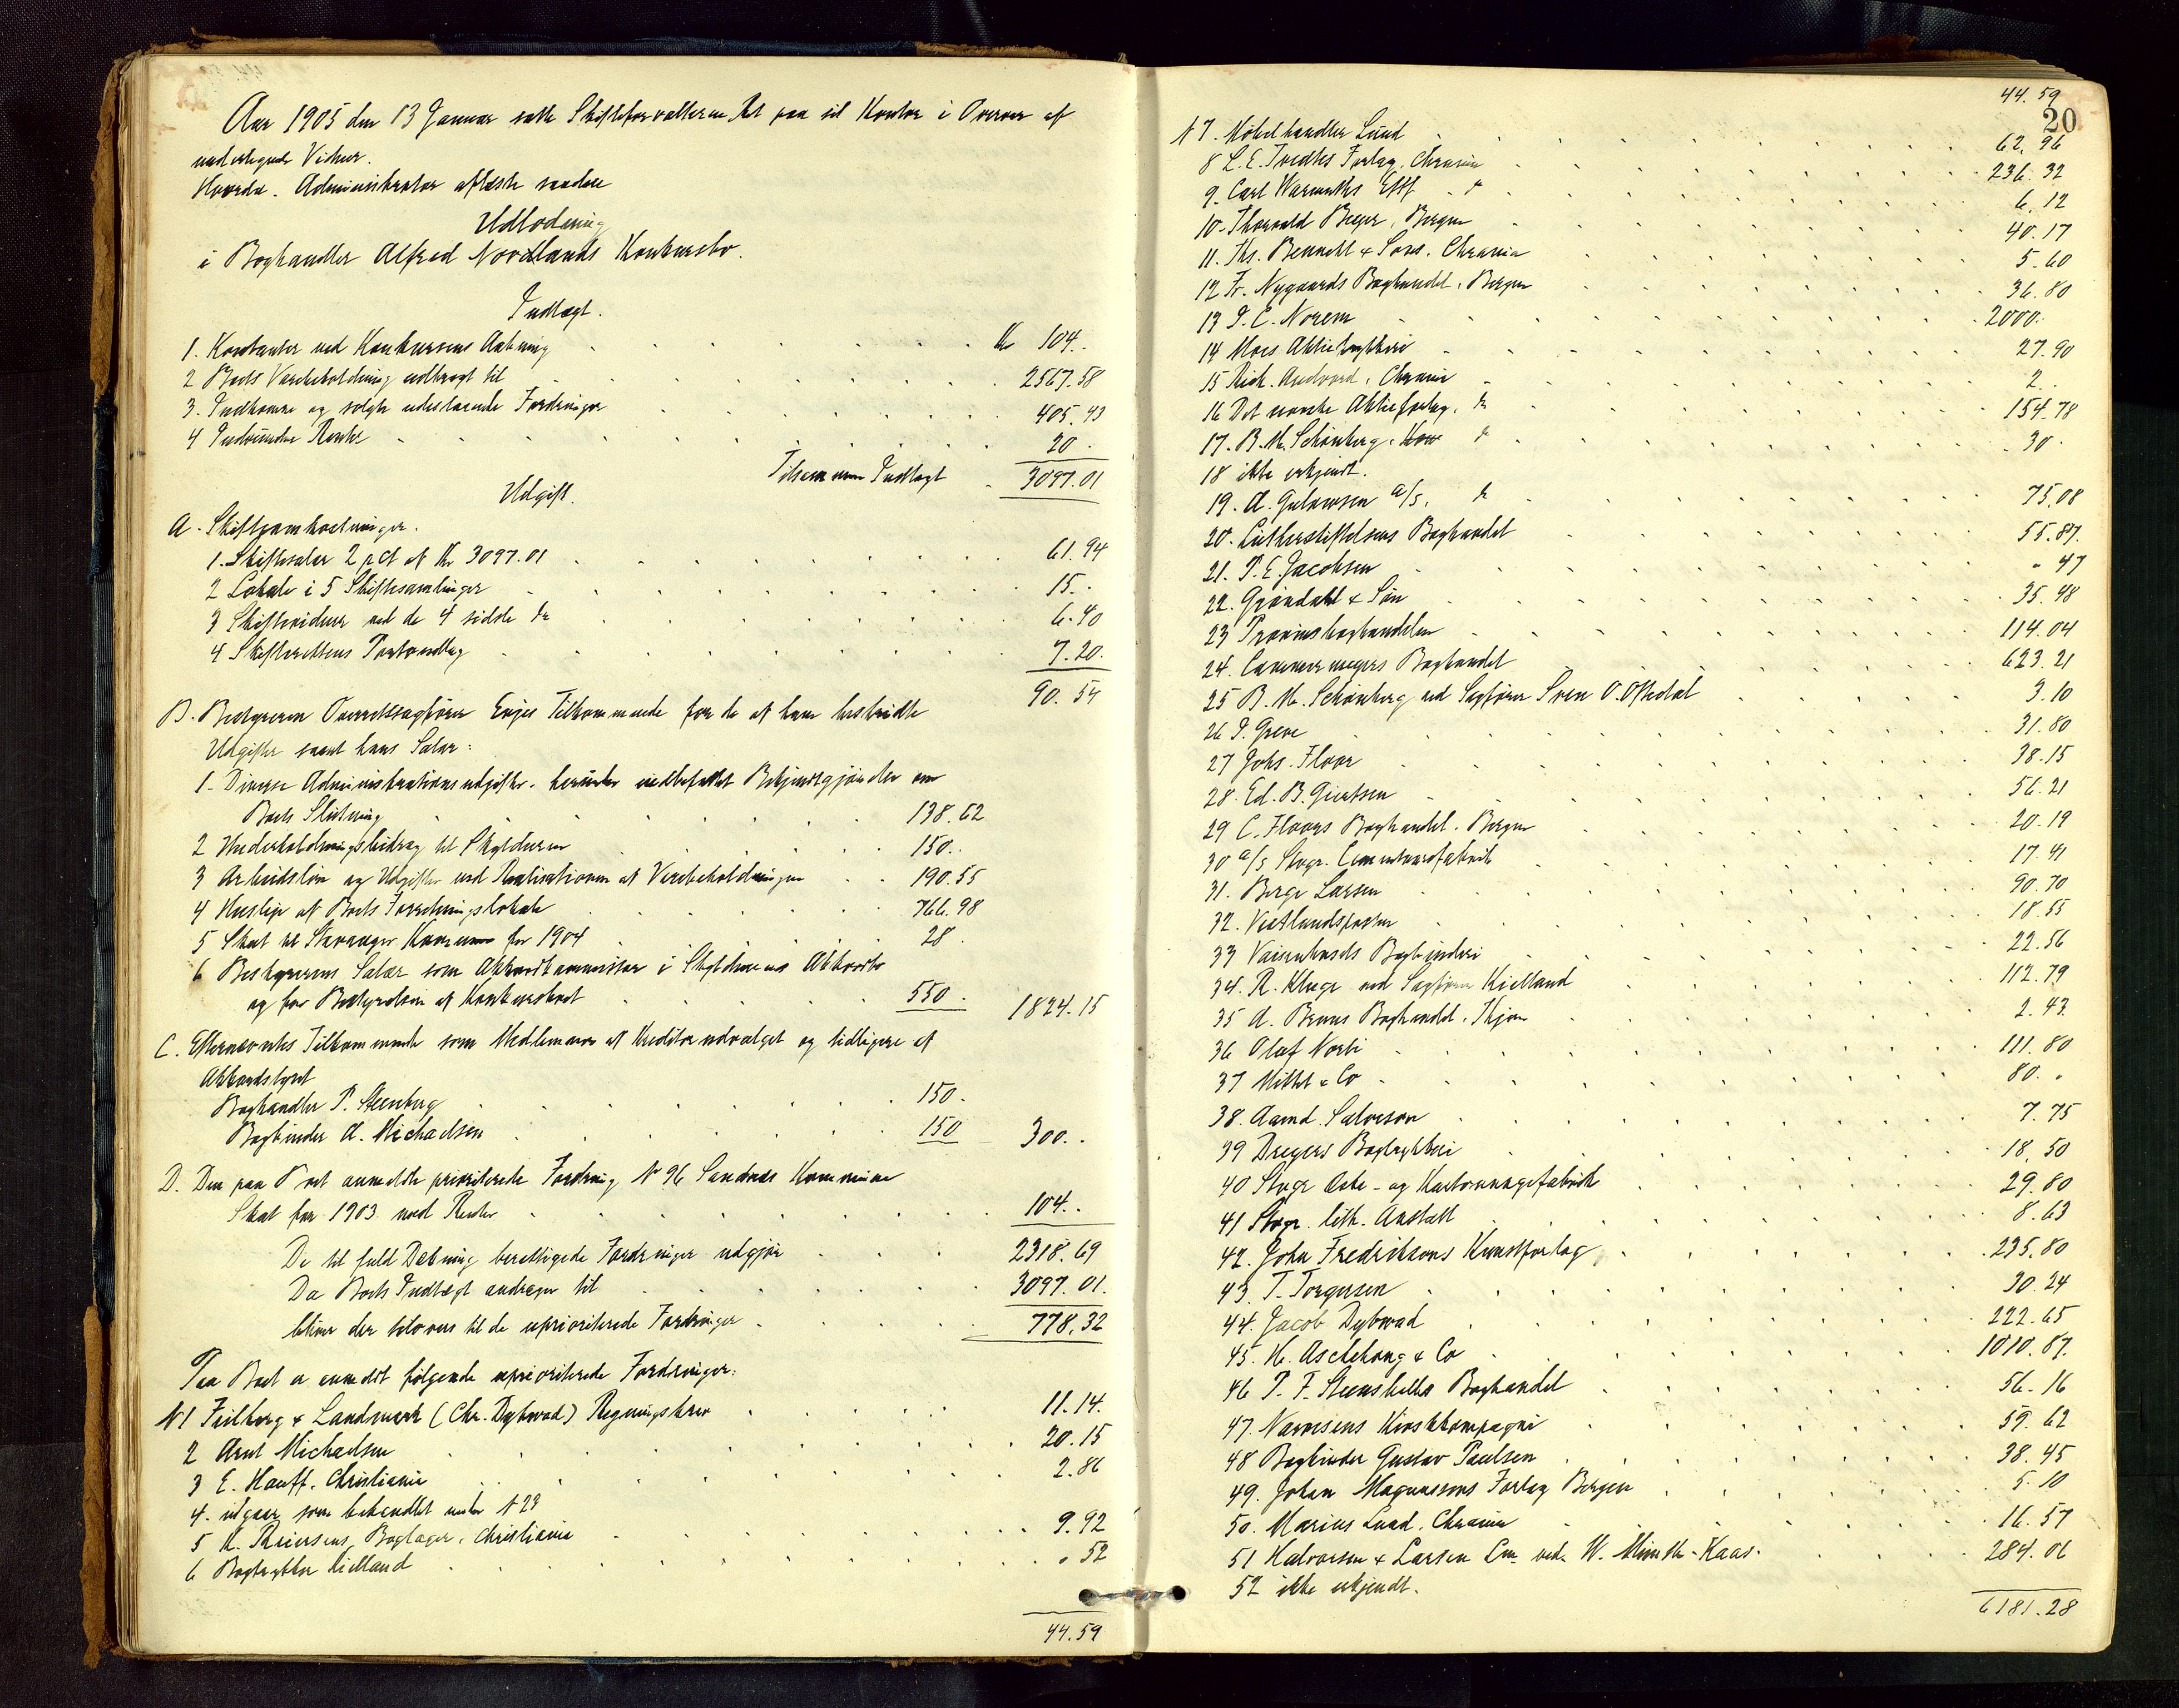 Aar 1905 den 13 Januar satte Skifteforvalteren Ret paa sit Kontor i Overvær af
undertegnede Vidner.
Hvorda. Administrator aflæste saadan
Udlodning
i Boghandler Alfred Nordlands Konkursbo.
Indtægt.
1. Kontanter ved Konkursens Aabning Kr 104.
2 Boets Varebeholdning udbragt til 2567.58
3. Indkomne og solgte udestaaende Fordringer 405.43
4 Indvundne Renter 20.
Tilsammen Indtægt 3097.01
Udgift.
A. Skifteomkostninger.
1. Skiftesalær 2 pct af Kr 3097.01 61.94
2 Lokale i 5 Skiftesamlinger 15.
3 Skiftevidner ved de 4 sidste do 6.40
4 Skifterettens Portoudlæg 7.20.
90.54
B. Bestyreren Overretssagfører Enjes Tilkommende for de af ham bestridte
Udgifter samt hans Salær:
1. Diverse Administrationsudgifter. herunder indbefattet Bekjendtgjørelse om
Boets Slutning 138.62
2 Underholdningsbidrag til Skyldneren 150.
3 Arbeidsløn og Udgifter ved Realisationen af Varebeholdningen 190.55
4 Husleje af Boets Forretningslokale 766.98
5 Skat til Stavanger Kommune for 1904 28.
6 Bestyrerens Salær som Akkordkommissær i Skyldnerens Akkordbo
og for Bestyrelsen af Konkursboet 550. 1824.15
C. Efternævntes Tilkommende som Medlemmer af Kreditorudvalget og tidligere af
Akkordstyret
Boghandler P. Steenberg 150.
Bogbinder A. Michaelsen 150 300.
D. Den paa Boet anmeldte prioriterede Fordring No 96 Sandnæs Kommune
Skat for 1903 med Renter 104.
De til fuld Dækning berettigede Fordringer udgjør 2318.69
Da Boets Indtægt andrager til 3097.01.
bliver der tilovers til de uprioriterede Fordringer 778.32
Paa Boet er anmeldt følgende uprioriterede Fordringer:
N1 Feilberg & Landmark (Chr. Dybwad) Regningskrav 11.14.
2 Arnt Michaelsen 20.15
3 E. Hauff. Christiania 2.86
4. udgaar som behandlet under N 23
5 K. Reiersens Boglager. Christiania 9.92
6 Bogtrykker Kielland " 52
44.59
44.59
20
N 7. Møbelhandler Lund 62.96
8 L. E. Tvedtes Forlag. Chrania 236.32
9. Carl Warmuths Eftf. do 6.12
10. Thorvald Beyer, Bergen 40.17
11. Ths. Bennett & Sons. Chrania 5.60
12 Fr. Nygaards Boghandel. Bergen 36.80
13 P. C. Norem 2000.
14 Moss Aktietrykkeri 27.90
15 Rich. Andvord. Chrania 2.
16 Det norske Aktieforlag. do 154.78
17. B. M. Schønberg. do 30.
18 ikke erkjendt.
19. A. Gulowsen a/s. do 75.08
20. Lutherstiftelsens Boghandel 55.87.
21. P. E. Jacobsen " 47
22. Grøndahl & Søn 35.48
23 Provinsboghandelen 114.04
24. Cammermeyers Boghandel 623.21
25 B. M. Schønberg ved Sagfører Sven O. Oftedal 3.10
26 P. Greve 31.80
27 Johs. Floor 38.15
28. Ed. B. Giertsen 56.21
29 C. Floors Boghandel. Bergen 20.19
30 a/s Stvgr. Cementvarefabrik 17.41
31. Berge Larsen 90.70
32. Vestlandsposten 18.55
33 Vaisenhusets Bogbinderi 22.56
34. R. Kluge ved Sagfører Kielland 112.79
35 A. Bruns Boghandel. Thjem 2.43
36 Olaf Norli 111.80
37 Mittet & Co 80. "
38. Aamd. Salveson 7.75
39 Dreyers Bogtrykkeri 18.50
40 Stvgr Æske- og Kartonnagefabrik 29.80
41 Stvgr. lith. Anstalt 8.63
42. John Fredriksons Kunstforlag 235.80
43. T. Torgersen 30.24
44. Jacob Dybwad 222.65
45. H. Aschehoug & Co 1010.87.
46 P. F. Steensballs Boghandel 56.16
47. Narvesens Kioskkompagni 59.62
48 Bogbinder Gustav Paulsen 38.45
49. Johan Magnussons Forlag Bergen 5.10
50. Marius Lund. Chrania 16.57
51 Halvorsen & Larsen Lm. ved. W. Minster-Kaas. 284.06
52 ikke erkjendt.
6181.28